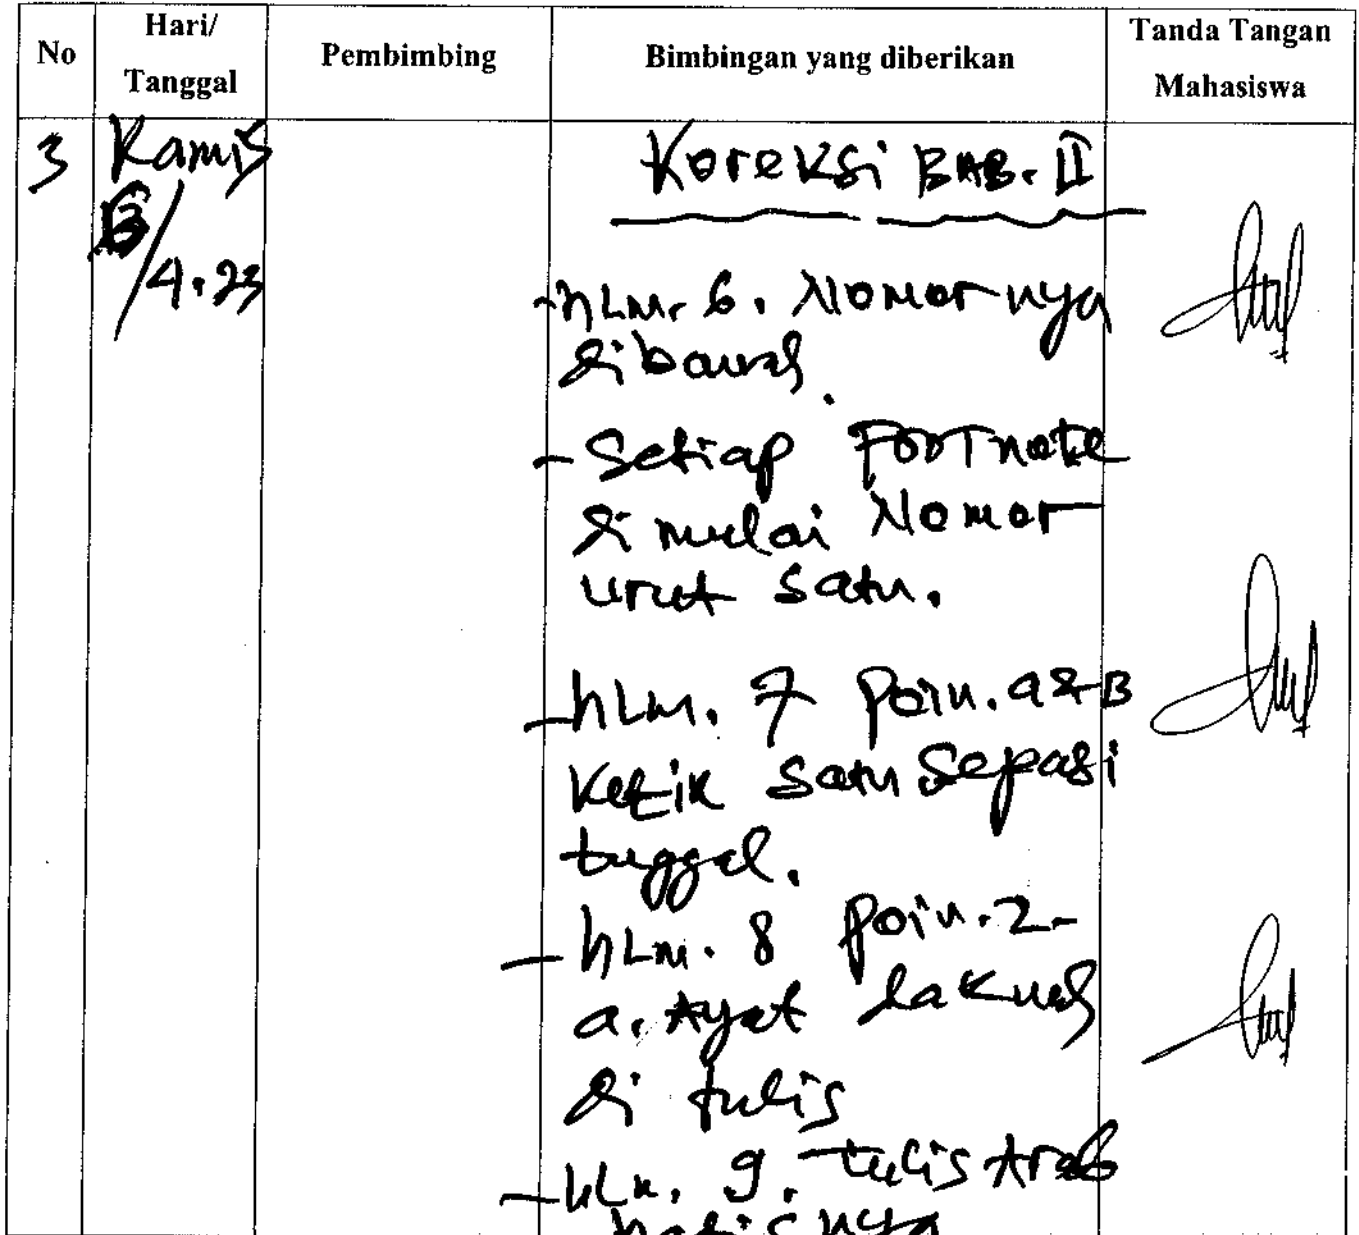 No
Hari/
Tanggal
Pembimbing
Bimbingan yang diberikan
Tanda Tangan
Mahasiswa
3
Kamis
/4.23
Koreksi BAB. II
- hLm. 6. Nomornya
dibawah.
- Setiap FOOTnote
di mulai Nomor
urut satu.
- hLm. 7 Poin. a & B
Ketik satu sepasi
tunggal.
- hLm. 8 Poin. 2-
a. Ayat
di tulis
- hLm. 9. tulis Arab
hadisnya